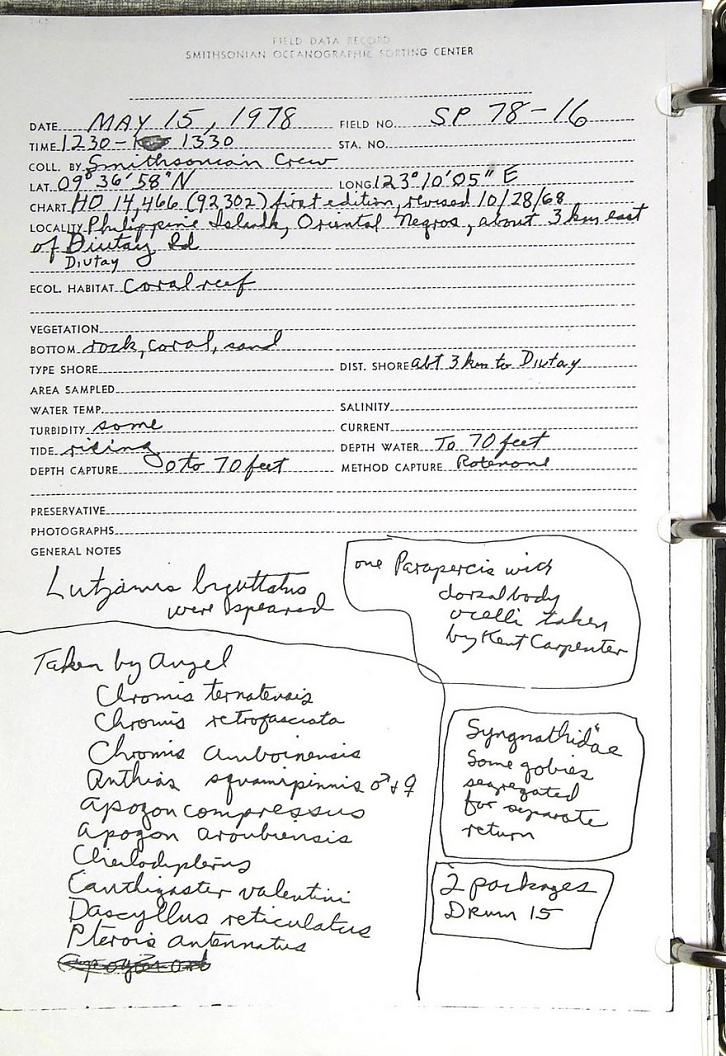 FIELD DATA RECORD
SMITHSONIAN OCEANOGRAPHIC SORTING CENTER
DATE MAY 15, 1978 FIELD NO. SP 78-16
TIME 1230- 1330 STA. NO.
COLL. BY Smithsonian Crew
LAT. 09° 36' 58" N LONG 123° 10' 05" E
CHART HO 14,466 (92302) first edition, revised 10/28/68
LOCALITY Philippine Islands, Oriental Negros, about 3 km east
of Diutay Id
Diutay
ECOL. HABITAT Coral reef
VEGETATION
BOTTOM rock, coral, sand
TYPE SHORE DIST. SHORE abt 3 km to Diutay
AREA SAMPLED
WATER TEMP. SALINITY
TURBIDITY some CURRENT
TIDE rising DEPTH WATER To 70 feet
DEPTH CAPTURE 0 to 70 feet METHOD CAPTURE Rotenone
PRESERVATIVE
PHOTOGRAPHS
GENERAL NOTES
Lutjanus biguttatus
were speared
one Parapercis with
dorsal body
ocelli taken
by Kent Carpenter
Taken by Angel
Chromis ternatensis
Chromis retrofasciata
Chromis amboinensis
Anthias squamipinnis ♂ + ♀
Apogon compressus
Apogon aroubiensis
Cheilodipterus
Canthigaster valentini
Dascyllus reticulatus
Pterois antennatus
Syngnathidae
Some gobies
segregated
for separate
return
2 packages
Drum 15